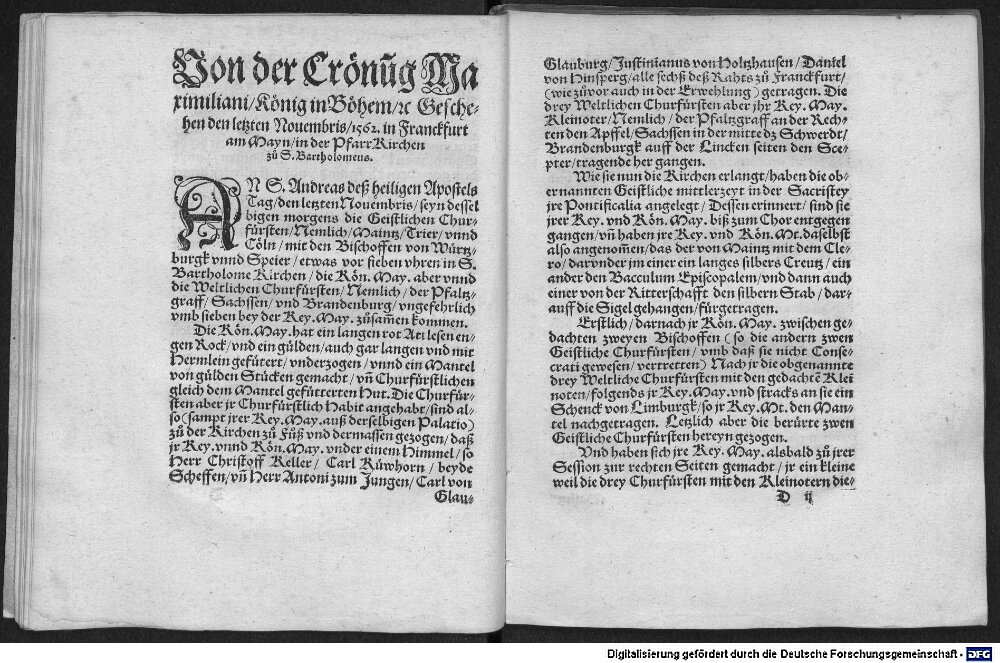 Von der Crönũg Ma
ximiliani/König in Böhem/ꝛc Gesche-
hen den letzten Nouembris/1562. in Franckfurt
am Mayn/in der PfarrKirchen
zů S. Bartholomeus.
AN S. Andreas deß heiligen Apostels
Tag/den letzten Nouembris/seyn dessel
bigen morgens die Geistlichen Chur-
fürsten/Nemlich/Maintz/Trier/vnnd
Cöln/mit den Bischoffen von Würtz-
burgk vnnd Speier/etwas vor sieben vhren in S.
Bartholome Kirchen/die Kön. May. aber vnnd
die Weltlichen Churfürsten/Nemlich/der Pfaltz-
graff/Sachssen/vnd Brandenburg/vngefehrlich
vmb sieben bey der Key. May. zůsam̃en kommen.
Die Kön. May. hat ein langen rot Atlesen en-
gen Rock/vnd ein gülden/auch gar langen vnd mit
Hermlein gefütert/vnderzogen/vnnd ein Mantel
von gülden Stücken gemacht/vñ Churfürstlichen
gleich dem Mantel gefütterten Hut. Die Churfür-
sten aber jr Churfürstlich Habit angehabt/sind al-
so (sampt jrer Key. May. auß derselbigen Palatio)
zů der Kirchen zů Fůß vnd dermassen gezogen/daß
jr Key. vnnd Kön. May. vnder einem Himmel/so
Herr Christoff Keller/Carl Kůwhorn/beyde
Scheffen/vñ Herr Antoni zum Jungen/Carl von
Glau-
Glauburg/Justinianus von Holtzhausen/Daniel
von Hinsperg/alle sechß deß Rahts zů Franckfurt/
(wie zůvor auch in der Erwehlung) getragen. Die
drey Weltlichen Churfürsten aber jhr Key. May.
Kleinoter/Nemlich/der Pfaltzgraff an der Rech-
ten den Apffel/Sachssen in der mitte dz Schwerdt/
Brandenburgk auff der Lincken seiten den Sce-
pter/tragende her gangen.
Wie sie nun die Kirchen erlangt/haben die ob-
ernannten Geistliche mittlerzeyt in der Sacristey
jre Pontificalia angelegt/Dessen erinnert/sind sie
jrer Key. vnd Kön. May. biß zum Chor entgegen
gangen/vñ haben jre Key. vnd Kön. Mt. daselbst
also angenom̃en/das der von Maintz mit dem Cle-
ro/darunder jm einer ein langes silbers Creutz/ein
ander den Bacculum Episcopalem/vnd dann auch
einer von der Ritterschafft den silbern Stab/dar-
auff die Sigel gehangen/fürgetragen.
Erstlich/darnach jr Kön. May. zwischen ge-
dachten zweyen Bischoffen (so die andern zwen
Geistliche Churfürsten/vmb daß sie nicht Conse-
crati gewesen/vertretten) Nach jr die obgenannte
drey Weltliche Churfürsten mit den gedachtẽ Klei
noten/folgends jr Key. May. vnd stracks an sie ein
Schenck von Limburgk/so jr Key. Mt. den Man-
tel nachgetragen. Letzlich aber die berürte zwen
Geistliche Churfürsten hereyn gezogen.
Vnd haben sich jre Key. May. alsbald zů jrer
Session zur rechten Seiten gemacht/jr ein kleine
weil die drey Churfürsten mit den Kleinotern die-
D ij
Digitalisierung gefördert durch die Deutsche Forschungsgemeinschaft - DFG